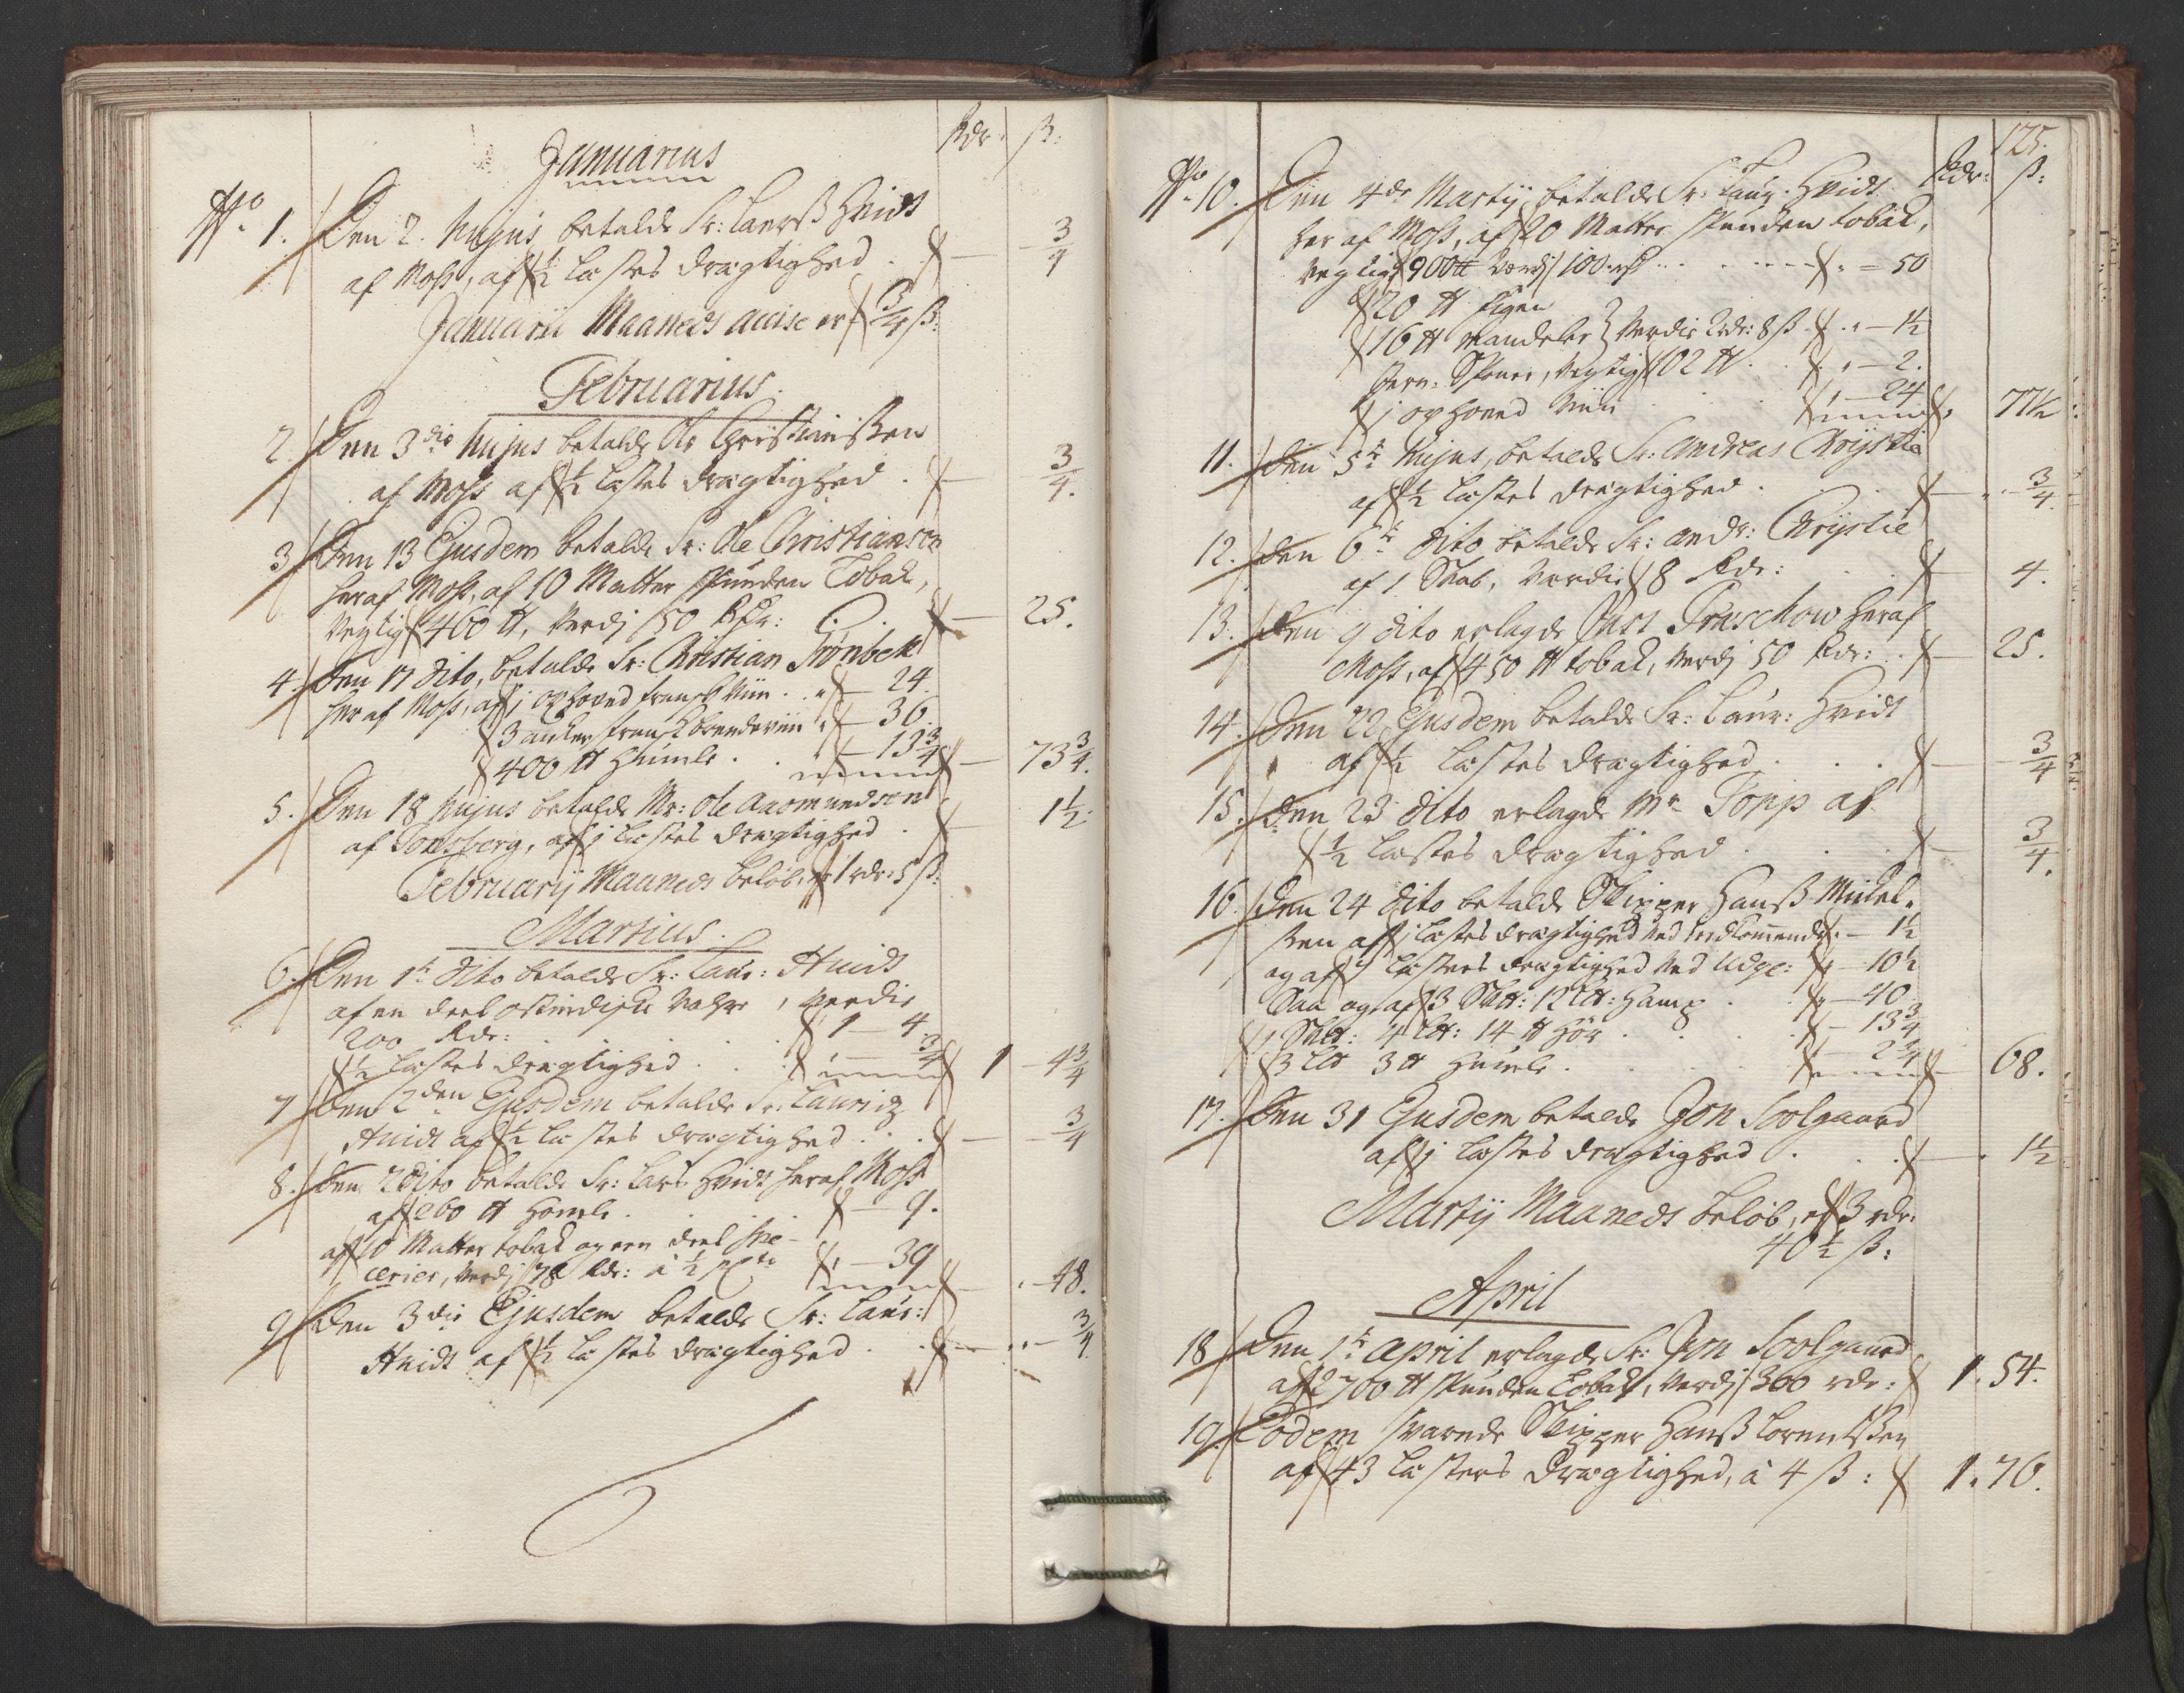 Januarius
Rdr: ß:
No 1. Den 2. hujus betalde Sr: Laurß Hvidt
af Moss, af ½ Læstes drægtighed . . — ¾
Januarii Maaneds accise er ¾ ß:
Februarius
2. Den 3die hujus betalde Ole Christianßen
af Moss af ½ Læstes drægtighed . — ¾.
3. Den 13 Ejusdem betalde Sr: Ole Christiansen
her af Moss, af 10 Matter spunden Tobak,
Vegtig 460 ℔, Verdj 50 Rdr: . . — 25.
4. Den 17 dito, betalde Sr: Christian Grønbek
her af Moss, af 1 oxhoved fransk Viin . . — 24.
3 anker fransk brendeviin — 36.
400 ℔ Humle . . — 13¾ — 73¾.
5. Den 18 hujus betalde Mr: Ole Aasmundsen
af Tonsberg, af 1 Læstes drægtighed . — 1½.
Februarij Maaneds beløb, er 1 rdr: 5 ß:
Martius.
6. Den 1te dito betalde Sr: Laur: Hvidt
af en deel ostindiske Vahre, Verdie
200 Rdr: . . . 1 — 4.
½ Læstes drægtighed . . . ¾ 1 — 4¾
7. Den 2den Ejusdem betalde Sr: Lauritz
Hvidt af ½ Læstes drægtighed . . . — ¾
8. Den 2 dito betalde Sr: Lars Hvidt her af Moss
af 260 ℔ Homle . . — 9.
af 10 Matter tobak og een deel spe-
cerier, Verdj 78 Rdr: à ½ pCto — 39 — 48.
9. Den 3die Ejusdem betalde Sr: Laur:
Hvidt af ½ Læstes drægtighed . . — ¾
125.
Rdr: ß:
No. 10. Den 4de Martij betalde Sr: Laur: Hvidt
her af Moss, af 20 Matter spunden tobak,
Vegtig 900 ℔ Verdj 100 rdr . . . — 50
20 ℔ Figen
16 ℔ Mandeler } Verdie 2 rdr: 8 ß . — 1½
Jern, Vegtig 102 ℔ . . — 2.
1 oxhoved Viin — 24 77½
11. Den 5te hujus, betalde Sr: Andreas Chrijstie
af ½ Læstes drægtighed . . . — ¾.
12. Den 6te dito betalde Sr: Andr: Chrijstie
af 1 Skab, Verdie 8 Rdr: . . — 4.
13. Den 9 dito erlagde Just Treschow her af
Moss, af 450 ℔ tobak, Verdj 50 Rdr: . — 25.
14. Den 22 Ejusdem betalde Sr: Laur: Hvidt
af ½ Læstes drægtighed . . . — ¾
15. Den 23 dito erlagde Mr Topp af
½ Læstes drægtighed . . . — ¾.
16. Den 24 dito betalde Skipper Hanß Mickel-
ßen af 1 Læstes drægtighed ved indkommende — 1½
og af 7 Læsters drægtighed ved Udge: — 10½
Saa og af 3 Sk℔: 12 L℔: Hamp . . — 40
1 Sk℔: 4 L℔: 14 ℔ Hør . . . — 13¾
3 L℔ 3 ℔ Humle . . . — 2¼ — 68.
17. Den 31 Ejusdem betalde Jon Soolgaard
af 1 Læstes drægtighed . . . — 1½
Martij Maaneds beløb, er 3 rdr:
40½ ß:
April
18. Den 1te April erlagde Sr: Jon Soolgaard
af 2700 ℔ spunden Tobak, Verdj 300 rdr: 1. 54.
19. Eodem svarede Skipper Hanß Lorentzßen
af 43 Læsters drægtighed, à 4 ß: 1. 76.